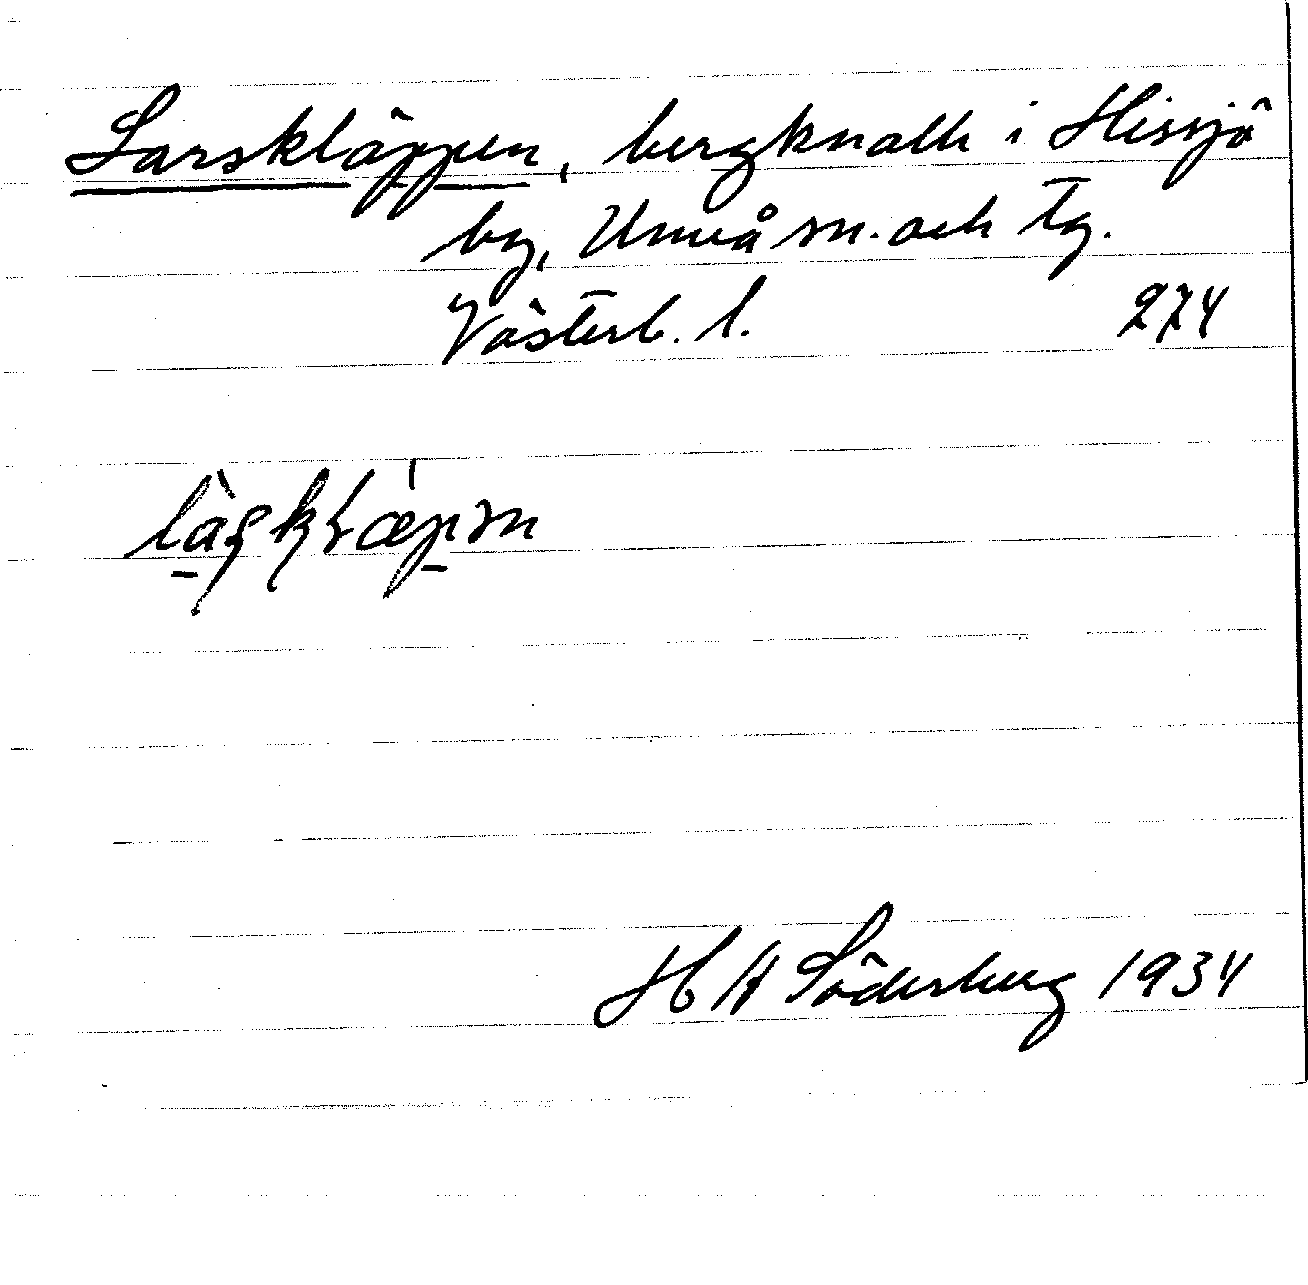 Larskläppen, bergknalle i Hissjö
by, Umeå sn. och tg.
Västerb. l. 274
H W Söderberg 1934